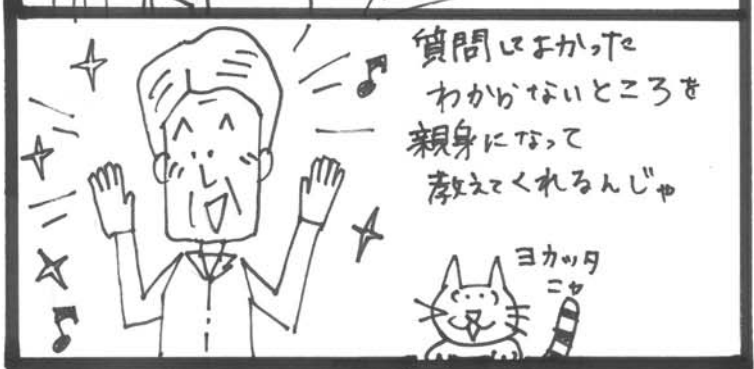 質問してよかった
わからないところを
親身になって
教えてくれるんじゃ
ヨカッタ
ニャ